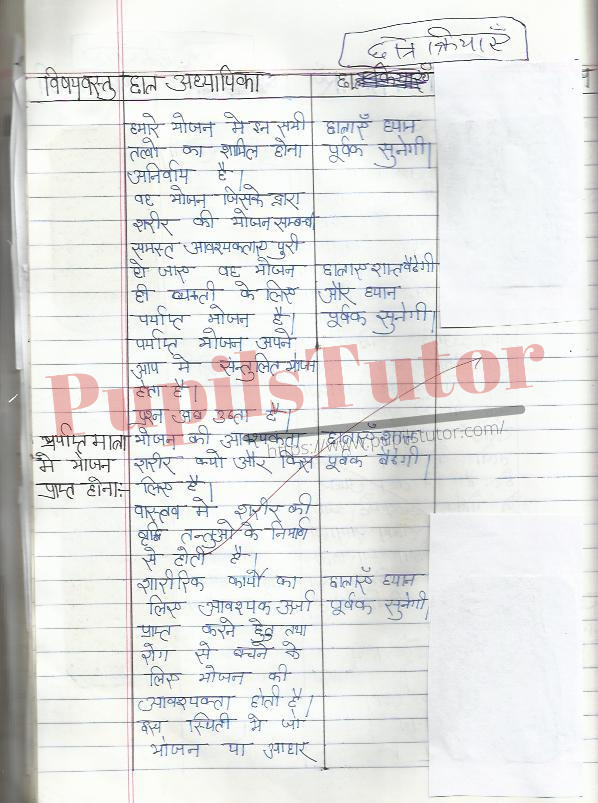 छात्र क्रियाएँ
विषयवस्तु छात्र अध्यापिका
हमारे भोजन मे इन सभी छात्राएँ ध्यान
तत्वो का शामिल होना पूर्वक सुनेगी।
अनिर्वाय है।
वह भोजन जिसके द्वारा
शरीर की भोजन सम्बन्धी
समस्त आवश्यकताए पुरी
हो जाए वह भोजन छात्राए शान्त बैठेगी
ही व्यक्ती के लिए और ध्यान
पर्याप्त भोजन है। पूर्वक सुनेगी।
पर्याप्त भोजन अपने
आप मे सन्तुलित भोजन
होता है।
प्रश्न अब उठता है।
PupilsTutor
प्रर्याप्त मात्रा भोजन की आवश्यकता छात्राएँ ध्यान
https://www.pupilstutor.com/
मे भोजन शरीर क्यो और किस पूर्वक बैठेगी
प्राप्त होना:- लिए है।
वास्तव मे शरीर की
वृद्धि तन्तुओ के निर्माण
से होती है।
शारीरिक कार्यो का छात्राएँ ध्यान
लिए आवश्यक उर्जा पूर्वक सुनेगी
प्राप्त करने हेतु तथा
रोग से बचने के
लिए भोजन की
आवश्यकता होती है।
इस स्थिती मे जो
भोजन या आहार